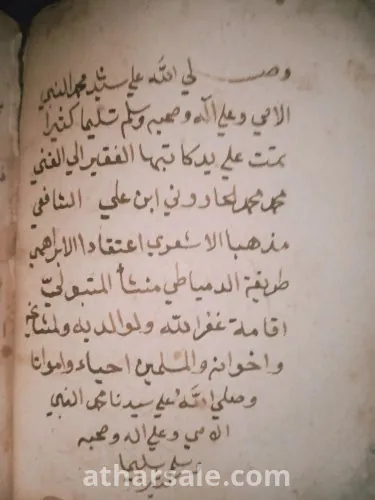 وصلي الله علي سيدنا محمد النبي
الامي وعلي آله وصحبه وسلم تسليما كثيرا
تمت علي يد كاتبها الفقير الي الغني
محمد محمد ابن علي الشافعي
مذهبا الاشعري اعتقادا الابراهيمي
طريقة الدمياطي منشأ المتبولي
اقامة غفر الله له ولوالديه ولمشايخه
واخوانه والمسلمين احياء وامواتا
وصلي الله علي سيدنا محمد النبي
الامي وعلي اله وصحبه
وسلم تسليما
atharsale.com